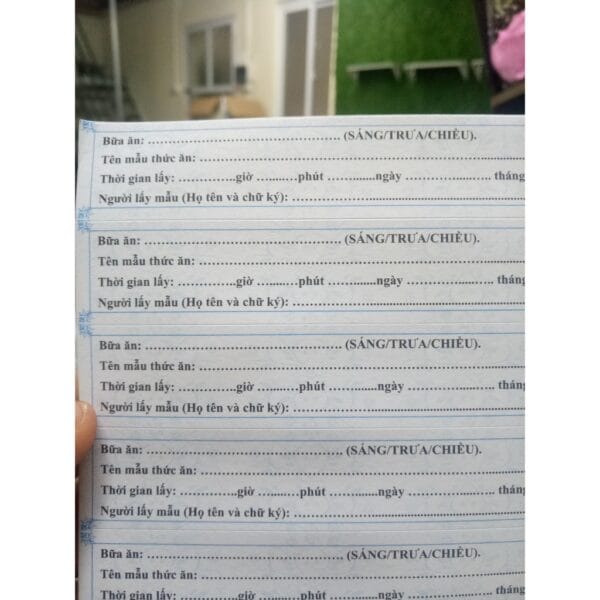 Bữa ăn: ............................................ (SÁNG/TRƯA/CHIỀU).
Tên mẫu thức ăn: ............................................
Thời gian lấy: ...............giờ ..........phút ...........ngày .................... tháng
Người lấy mẫu (Họ tên và chữ ký): ............................................
Bữa ăn: ............................................ (SÁNG/TRƯA/CHIỀU).
Tên mẫu thức ăn: ............................................
Thời gian lấy: ...............giờ ..........phút ...........ngày .................... tháng
Người lấy mẫu (Họ tên và chữ ký): ............................................
Bữa ăn: ............................................ (SÁNG/TRƯA/CHIỀU).
Tên mẫu thức ăn: ............................................
Thời gian lấy: ...............giờ ..........phút ...........ngày .................... tháng
Người lấy mẫu (Họ tên và chữ ký): ............................................
Bữa ăn: ............................................ (SÁNG/TRƯA/CHIỀU).
Tên mẫu thức ăn: ............................................
Thời gian lấy: ...............giờ ..........phút ...........ngày .................... tháng
Người lấy mẫu (Họ tên và chữ ký): ............................................
Bữa ăn: ............................................ (SÁNG/TRƯA/CHIỀU).
Tên mẫu thức ăn: ............................................
Thời gian lấy: ...............giờ ..........phút ...........ngày .................... tháng